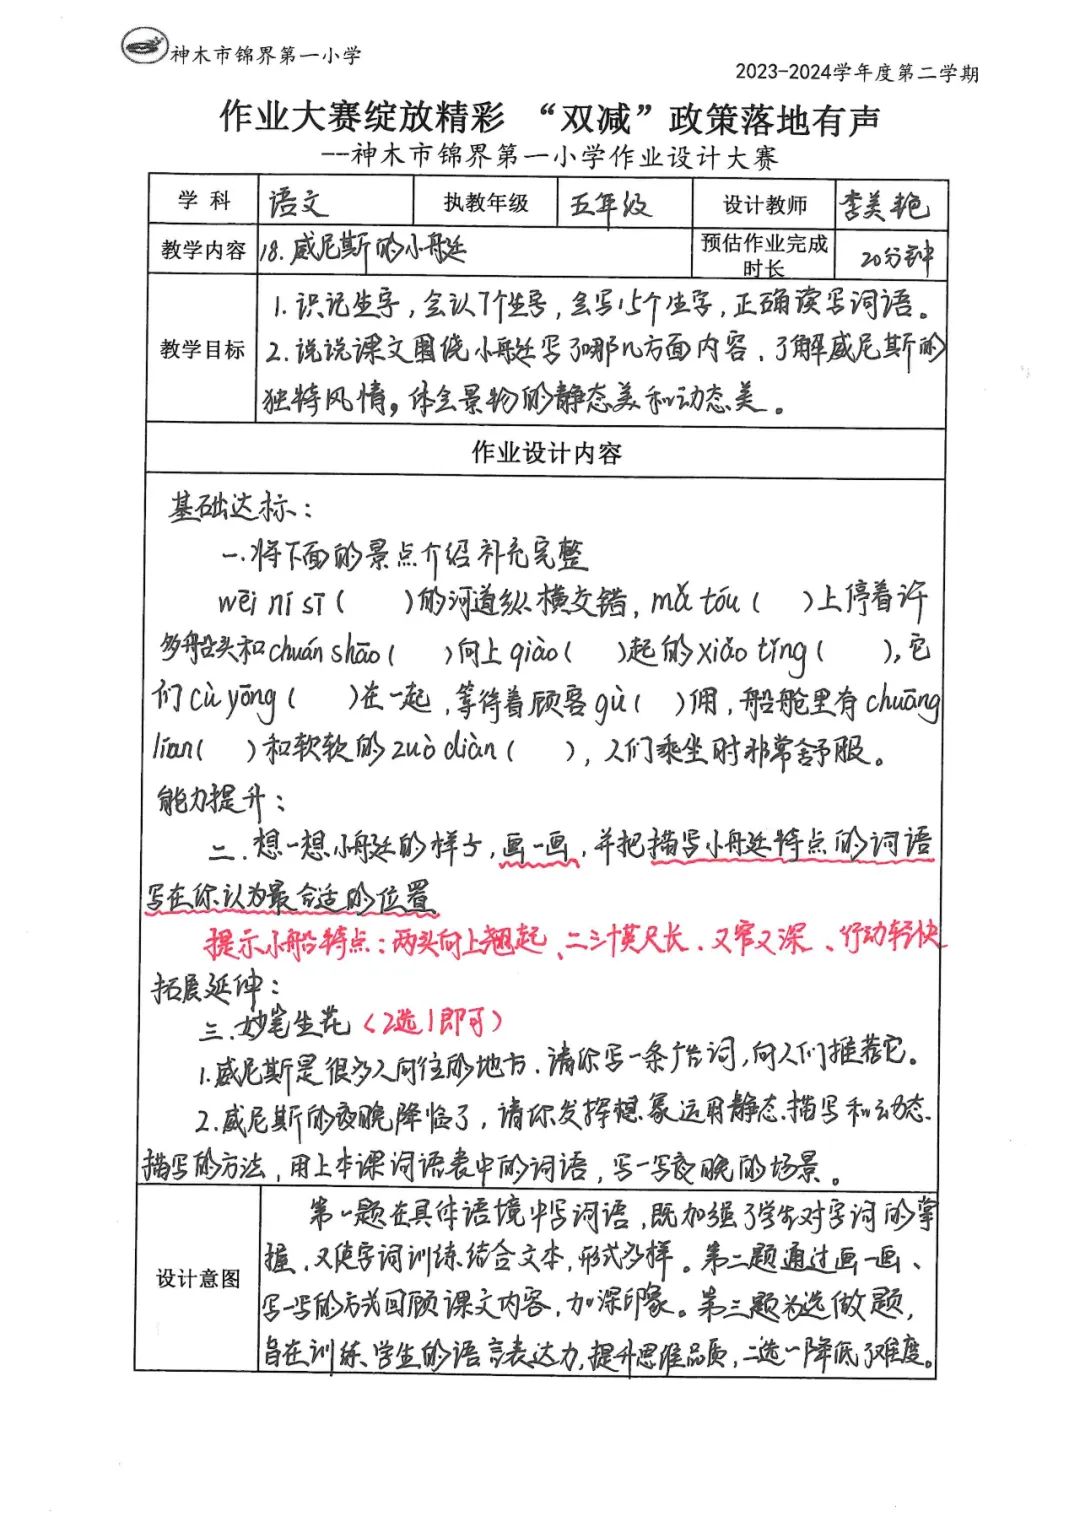 神木市锦界第一小学
2023-2024学年度第二学期
作业大赛绽放精彩 “双减”政策落地有声
--神木市锦界第一小学作业设计大赛
学科 语文 执教年级 五年级 设计教师 李美艳
教学内容 18.威尼斯的小艇 预估作业完成时长 20分钟
教学目标
1.识记生字,会认7个生字,会写15个生字,正确读写词语。
2.说说课文围绕小艇写了哪几方面内容,了解威尼斯的
独特风情,体会景物的静态美和动态美。
作业设计内容
基础达标:
一.将下面的景点介绍补充完整
wēi ní sī ( )的河道纵横交错,mǎ tóu ( )上停着许
多船头和chuán shāo ( )向上qiào ( )起的xiǎo tǐng ( ),它
们cù yōng ( )在一起,等待着顾客gù ( )佣,船舱里有chuāng
lián ( )和软软的zuò diàn ( ),人们乘坐时非常舒服。
能力提升:
二.想一想小艇的样子,画一画,并把描写小艇特点的词语
写在你认为最合适的位置
提示小船特点:两头向上翘起、二三十英尺长、又窄又深、行动轻快
拓展延伸:
三.妙笔生花(2选1即可)
1.威尼斯是很多人向往的地方.请你写一条广告词,向人们推荐它。
2.威尼斯的夜晚降临了,请你发挥想象运用静态描写和动态
描写的方法,用上本课词语表中的词语,写一写夜晚的场景。
设计意图
第一题在具体语境中写词语,既加强了学生对字词的掌
握,又使字词训练结合文本,形式多样。第二题通过画一画、
写一写的方式回顾课文内容,加深印象。第三题为选做题,
旨在训练学生的语言表达力,提升思维品质,二选一降低了难度。